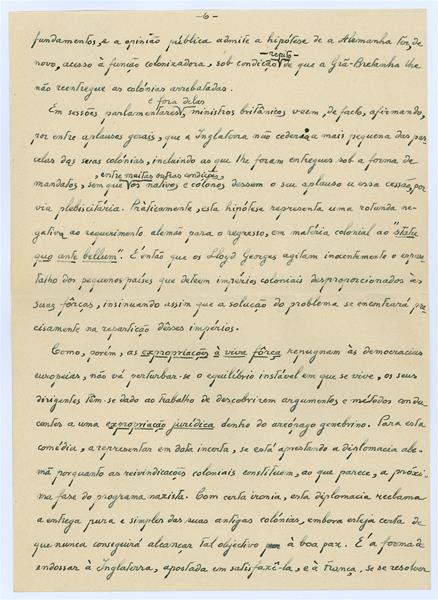 -6-
fundamentos, e a opinião pública admite a hipótese de a Alemanha ter, de
novo, acesso à função colonizadora, sob condição -repito- de que a Grã-Bretanha lhe
não reentregue as colónias arrebatadas.
Em sessões parlamentares e fora delas, ministros britânicos veem, de facto, afirmando,
por entre aplausos gerais, que a Inglaterra não cederá a mais pequena das par-
celas das suas colónias, incluindo as que lhe foram entregues sob a forma de
mandatos, sem que, entre muitas outras condições, os nativos e colonos dessem o seu aplauso a essa cessão, por
via plebiscitária. Pràticamente, esta hipótese representa uma rotunda ne-
gativa ao requerimento alemão para o regresso, em matéria colonial ao "statu
quo ante bellum". E então que os Lloyd Georges agitam inocentemente o espan-
talho dos pequenos países que deteem impérios coloniais desproporcionados às
suas fôrças, insinuando assim que a solução do problema se encontrará pre-
cisamente na repartição dêsses impérios.
Como, porém, as expropriações à viva fôrça repugnam às democracias
europeias, não vá perturbar-se o equilíbrio instável em que se vive, os seus
dirigentes têm-se dado ao trabalho de descobrirem argumentos e métodos condu-
centes a uma expropriação jurídica dentro do areópago genebrino. Para esta
comédia, a representar em data incerta, se está aprestando a diplomacia ale-
mã porquanto as reivindicações coloniais constituem, ao que parece, a próxi-
ma fase do programa naziste. Com certa ironia, esta diplomacia reclama
a entrega pura e simples das suas antigas colónias, embora esteja certa de
que nunca conseguirá alcançar tal objectivo à boa paz. É a forma de
endossar à Inglaterra, apostada em satisfazê-la, e à França, se se resolver